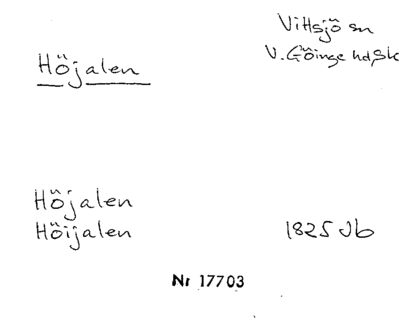 Vittsjö sn
V. Göinge hd, Sk
Höjalen
Höjalen
Höijalen 1825 Jb
Nr 17703